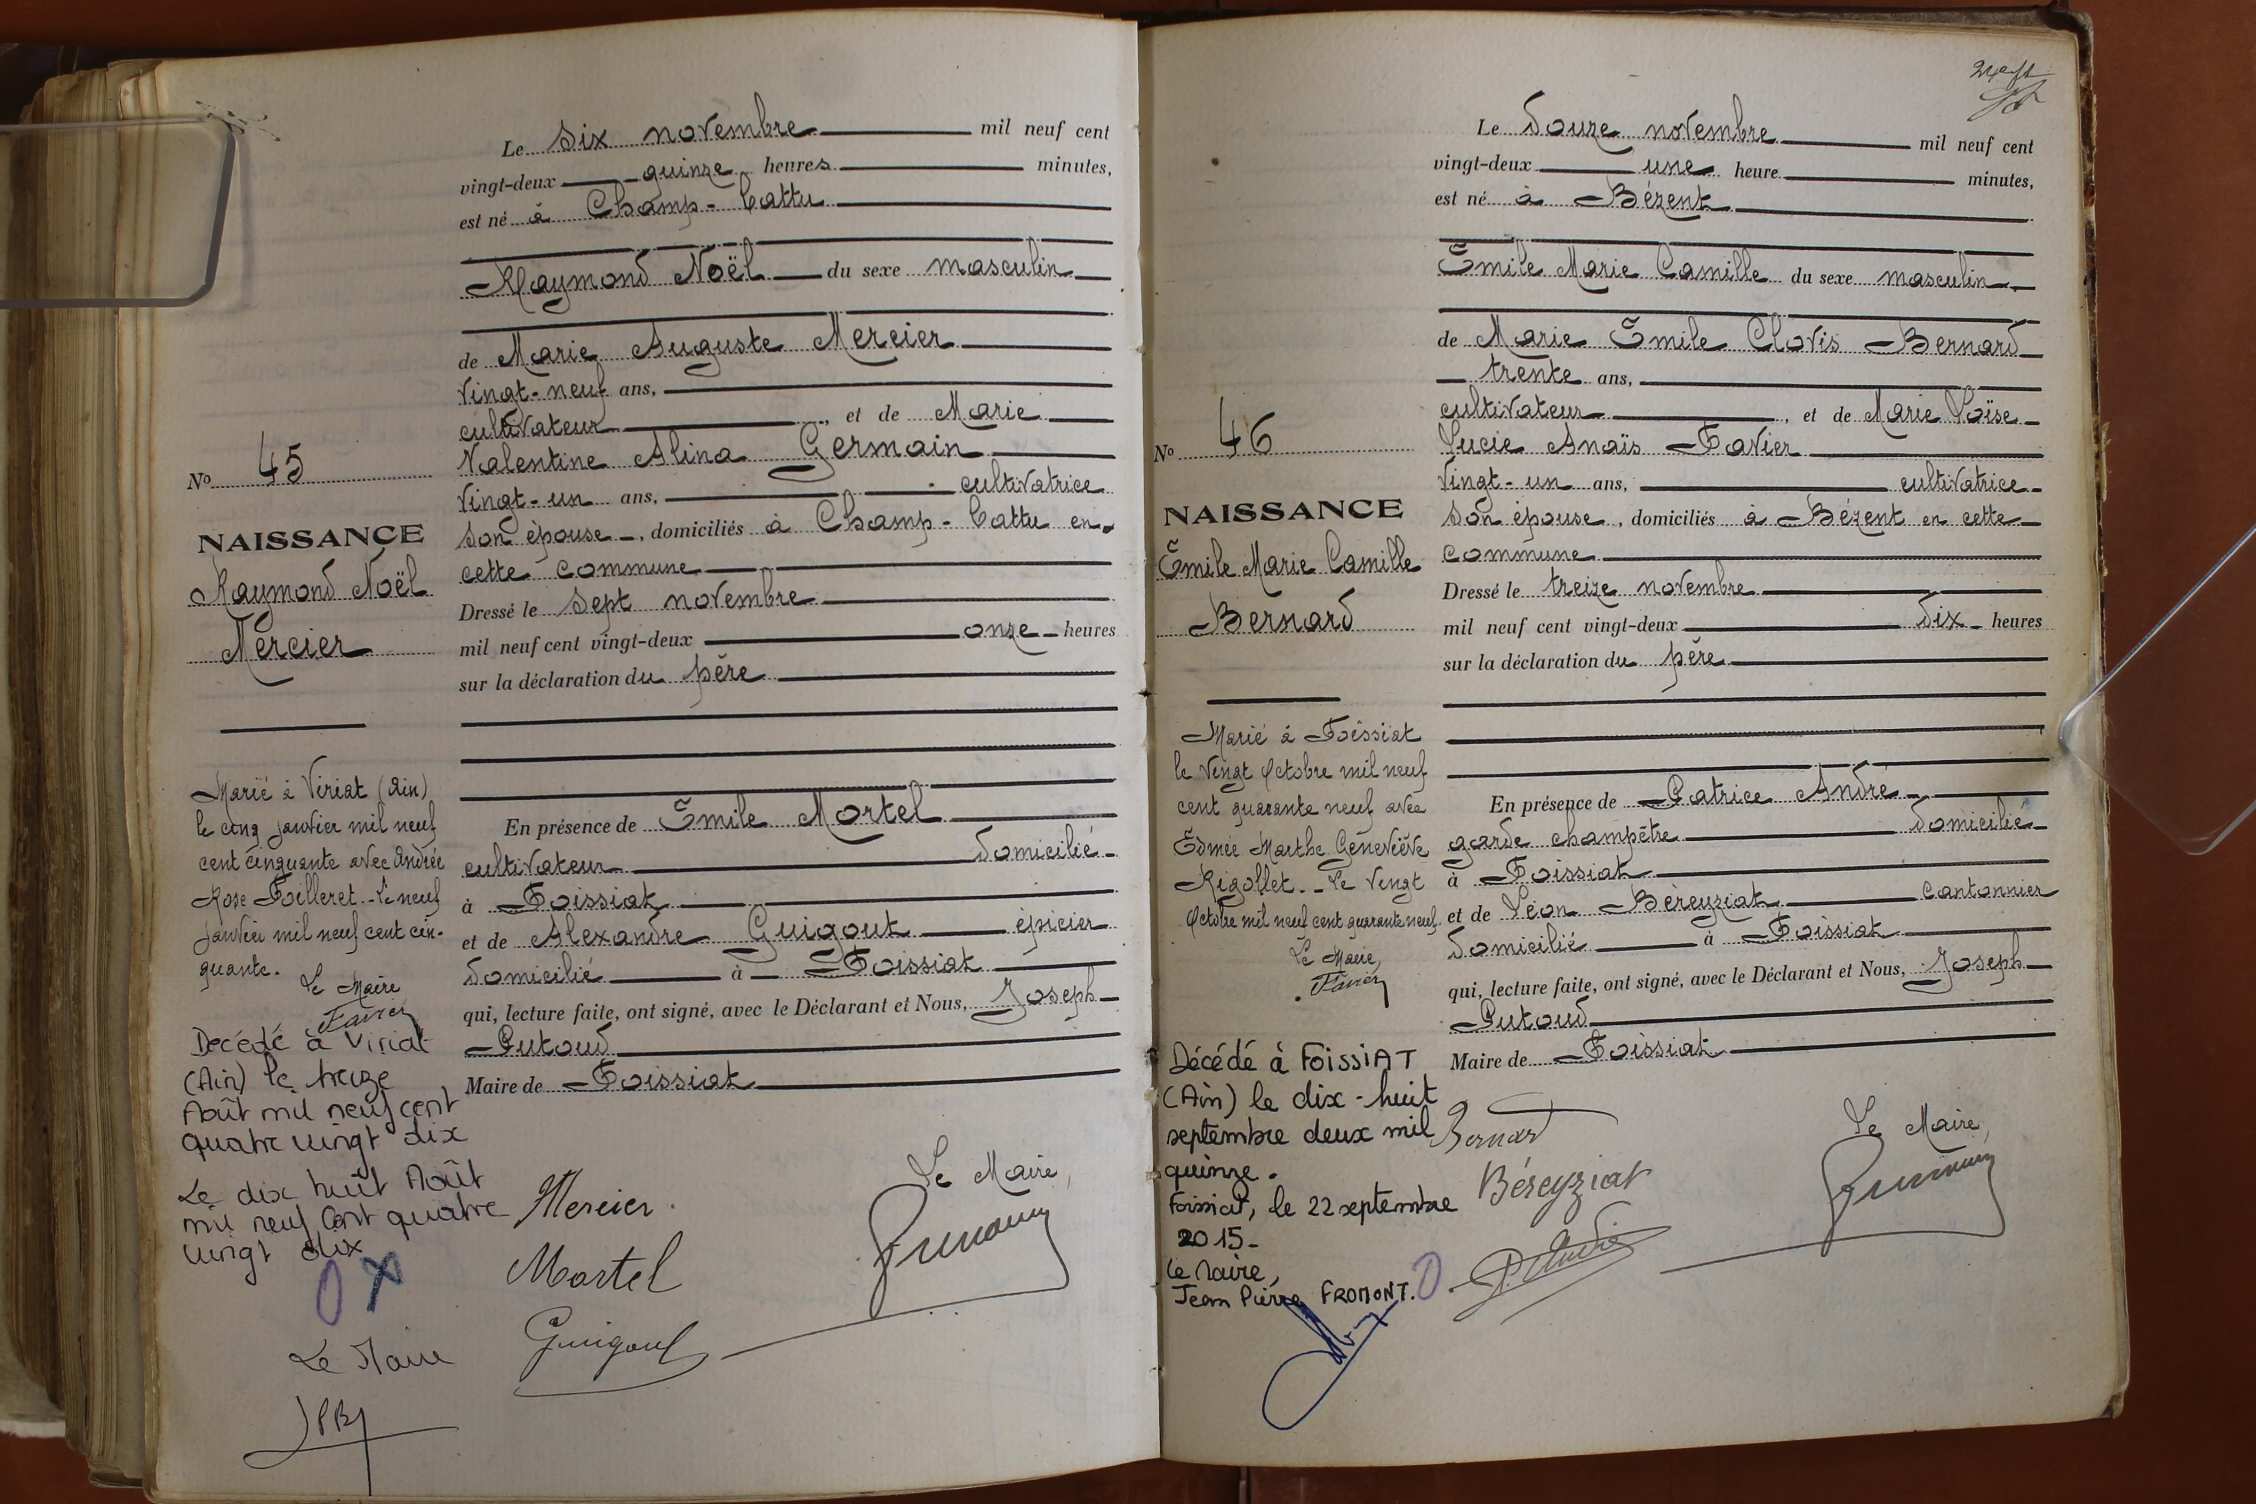 Le six novembre mil neuf cent
vingt-deux quinze heures minutes,
est né à Champ-Cattu
Raymond Noël du sexe masculin
de Marie Auguste Mercier
vingt-neuf ans,
cultivateur, et de Marie
Valentine Alina Germain
vingt-un ans, cultivatrice
son épouse, domiciliés à Champ-Cattu en
cette commune
Dressé le sept novembre
mil neuf cent vingt-deux onze heures
sur la déclaration du père
En présence de Emile Mortel
cultivateur domicilié
à Foissiat
et de Alexandre Guigout épicier
domicilié à Foissiat
qui, lecture faite, ont signé, avec le Déclarant et Nous, Joseph
Putoud
Maire de Foissiat
Le Maire,
Mercier
Mortel
Guigout
No 45
NAISSANCE
Raymond Noël
Mercier
Marié à Viriat (Ain)
le cinq janvier mil neuf
cent cinquante avec Andrée
Rose Foilleret. Le neuf
janvier mil neuf cent cin-
quante.
Le Maire
Favier
Decédé à Viriat
(Ain) le treize
Août mil neuf cent
quatre vingt dix
Le dix huit Août
mil neuf cent quatre
vingt dix
Le Maire
24
Le douze novembre mil neuf cent
vingt-deux une heure minutes,
est né à Bézent
Emile Marie Camille du sexe masculin
de Marie Emile Clovis Bernard
trente ans,
cultivateur, et de Marie Loïse
Lucie Anaïs Favier
vingt-un ans, cultivatrice
son épouse, domiciliés à Bézent en cette
commune
Dressé le treize novembre
mil neuf cent vingt-deux dix heures
sur la déclaration du père
En présence de Patrice André
garde champêtre domicilié
à Foissiat
et de Léon Béreyziat cantonnier
domicilié à Foissiat
qui, lecture faite, ont signé, avec le Déclarant et Nous, Joseph
Putoud
Maire de Foissiat
Le Maire,
Bernard
Béreyziat
P. André
No 46
NAISSANCE
Emile Marie Camille
Bernard
Marié à Foissiat
le vingt Octobre mil neuf
cent quarante neuf avec
Edmée Marthe Geneviève
Rigollet. Le vingt
Octobre mil neuf cent quarante neuf.
Le Maire,
Favier
Décédé à FOISSIAT
(Ain) le dix-huit
septembre deux mil
quinze.
Foissiat, le 22 septembre
2015-
Le Maire,
Jean Pierre FROMONT.